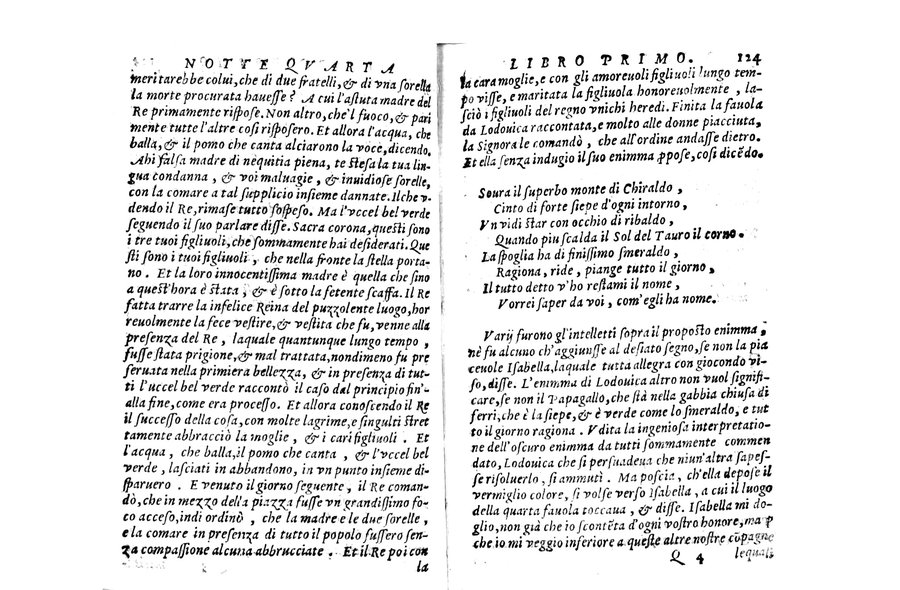 NOTTE QVARTA
meritarebbe colui, che di due fratelli, & di vna sorella
la morte procurata hauesse? A cui l'astuta madre del
Re primamente rispose. Non altro, che'l fuoco, & pari
mente tutte l'altre cosi risposero. Et allora l'acqua, che
balla, & il pomo che canta alciarono la voce, dicendo.
Ahi falsa madre di nequitia piena, te stesa la tua lin-
gua condanna, & voi maluagie, & inuidiose sorelle,
con la comare a tal supplicio insieme dannate. Ilche v-
dendo il Re, rimase tutto sospeso. Ma l'vccel bel verde
seguendo il suo parlare disse. Sacra corona, questi sono
i tre tuoi figliuoli, che sommamente hai desiderati. Que
sti sono i tuoi figliuoli, che nella fronte la stella porta-
no. Et la loro innocentissima madre è quella che sino
a quest'hora è stata, & è sotto la fetente scaffa. Il Re
fatta trarre la infelice Reina del puzzolente luogo, hor
reuolmente la fece vestire, & vestita che fu, venne alla
presenza del Re, laquale quantunque lungo tempo,
fusse stata prigione, & mal trattata, nondimeno fu pre
seruata nella primiera bellezza, & in presenza di tut-
ti l'vccel bel verde raccontò il caso dal principio fin'
alla fine, come era processo. Et allora conoscendo il Re
il successo della cosa, con molte lagrime, e singulti stret
tamente abbracciò la moglie, & i cari figliuoli. Et
l'acqua, che balla, il pomo che canta, & l'vccel bel
verde, lasciati in abbandono, in vn punto insieme di-
sparuero. E venuto il giorno seguente, il Re coman-
dò, che in mezzo della piazza fusse vn grandissimo fo-
co acceso, indi ordinò, che la madre e le due sorelle,
e la comare in presenza di tutto il popolo fussero sen-
za compassione alcuna abbrucciate. Et il Re poi con
la
LIBRO PRIMO. 124
la cara moglie, e con gli amoreuoli figliuoli lungo tem-
po visse, e maritata la figliuola honoreuolmente, la-
sciò i figliuoli del regno vnichi heredi. Finita la fauola
da Lodouica raccontata, e molto alle donne piacciuta,
la Signora le comandò, che all'ordine andasse dietro.
Et ella senza indugio il suo enimma ꝓpose, cosi dicẽdo.
Soura il superbo monte di Chiraldo,
Cinto di forte siepe d'ogni intorno,
Vn vidi star con occhio di ribaldo,
Quando piu scalda il Sol del Tauro il corno.
La spoglia ha di finissimo smeraldo,
Ragiona, ride, piange tutto il giorno,
Il tutto detto v'ho restami il nome,
Vorrei saper da voi, com'egli ha nome.
Varij furono gl'intelletti sopra il proposto enimma,
nè fu alcuno ch'aggiunsse al desiato segno, se non la pia
ceuole Isabella, laquale tutta allegra con giocondo vi-
so, disse. L'enimma di Lodouica altro non vuol signifi-
care, se non il Papagallo, che stà nella gabbia chiusa di
ferri, che è la siepe, & è verde come lo smeraldo, e tut
to il giorno ragiona. Vdita la ingeniosa interpretatio-
ne dell'oscuro enimma da tutti sommamente commen
dato, Lodouica che si persuadeua che niun'altra sapes-
se risoluerlo, si ammutì. Ma poscia, ch'ella depose il
vermiglio colore, si volse verso Isabella, a cui il luogo
della quarta fauola toccaua, & disse. Isabella mi do-
glio, non già che io scontẽta d'ogni vostro honore, ma ꝑ
che io mi veggio inferiore a queste altre nostre cõpagne
Q 4 lequali